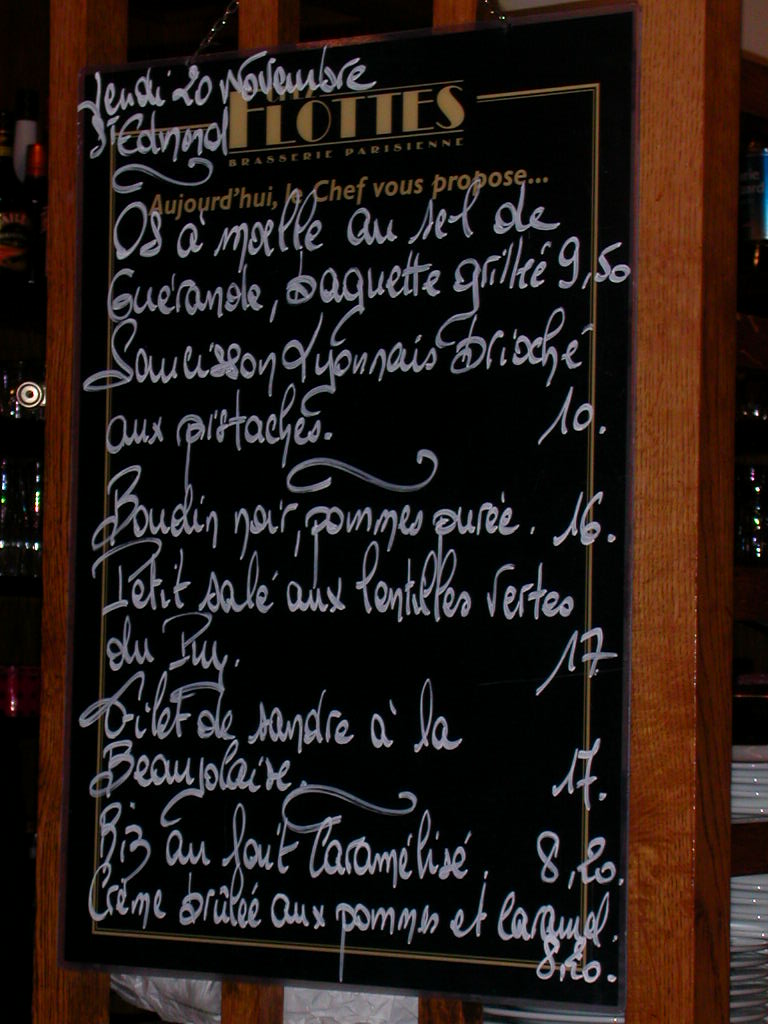 Jeudi 20 Novembre
St Edmond
FLOTTES
BRASSERIE PARISIENNE
Aujourd'hui, le Chef vous propose...
Os à moelle au sel de
Guérande, baguette grillée 9,50
Saucisson Lyonnais brioché
aux pistaches. 10.
Boudin noir, pommes purée. 16.
Petit salé aux lentilles vertes
du Puy. 17
Filet de sandre à la
Beaujolaise. 17.
Riz au lait Caramélisé. 8,20.
Crème brûlée aux pommes et Caramel.
8,20.